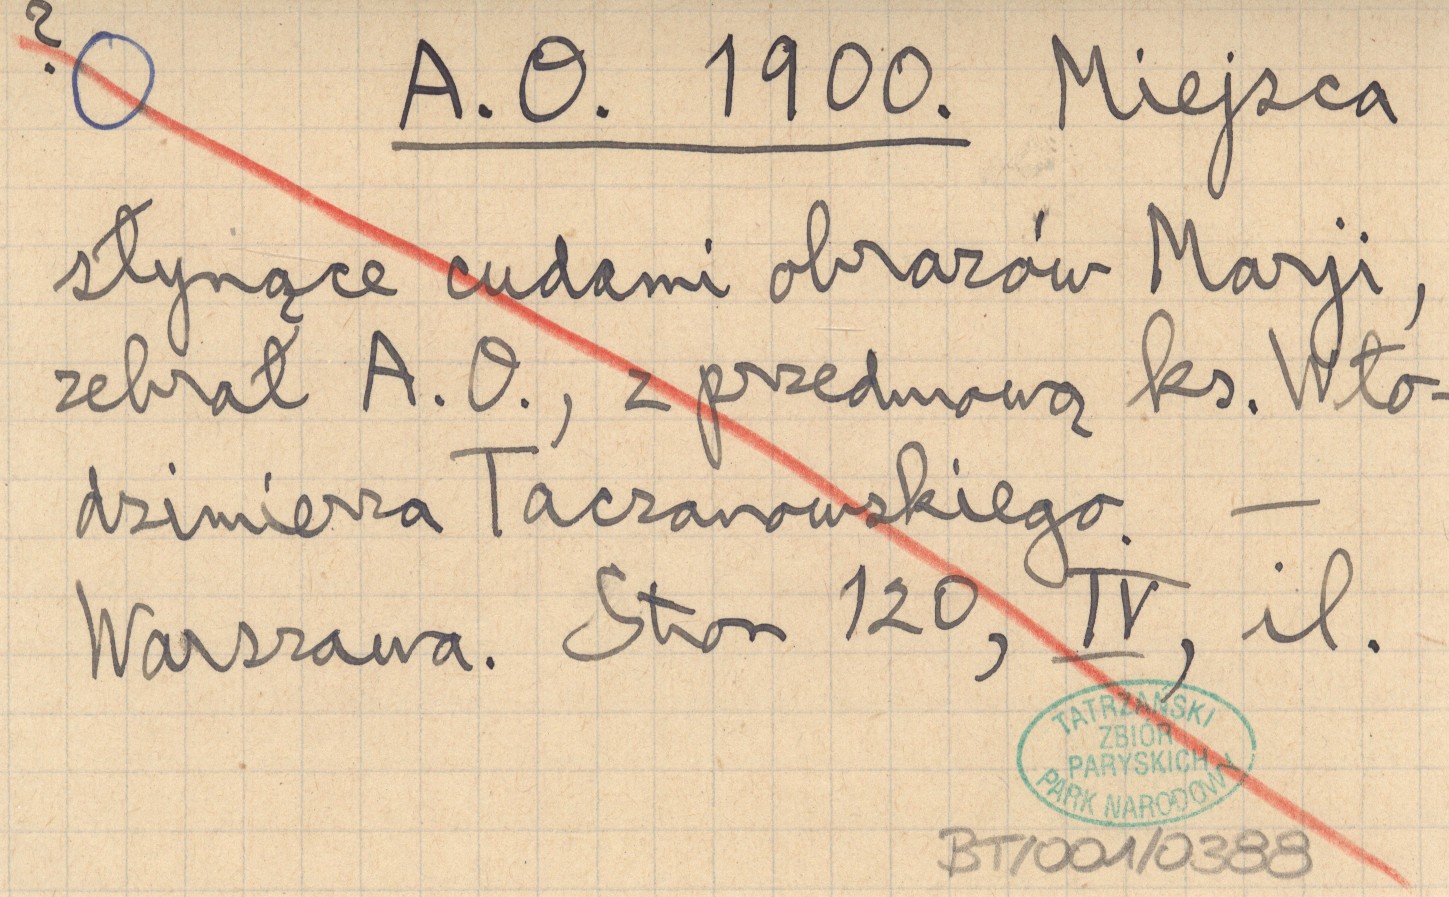 ? O A.O. 1900. Miejsca
słynące cudami obrazów Marji,
zebrał A.O., z przedmową ks. Wło-
dzimierza Taczanowskiego. —
Warszawa. Stron 120, IV, il.
TATRZAŃSKI
ZBIÓR
PARYSKICH
PARK NARODOWY
BT/001/0388